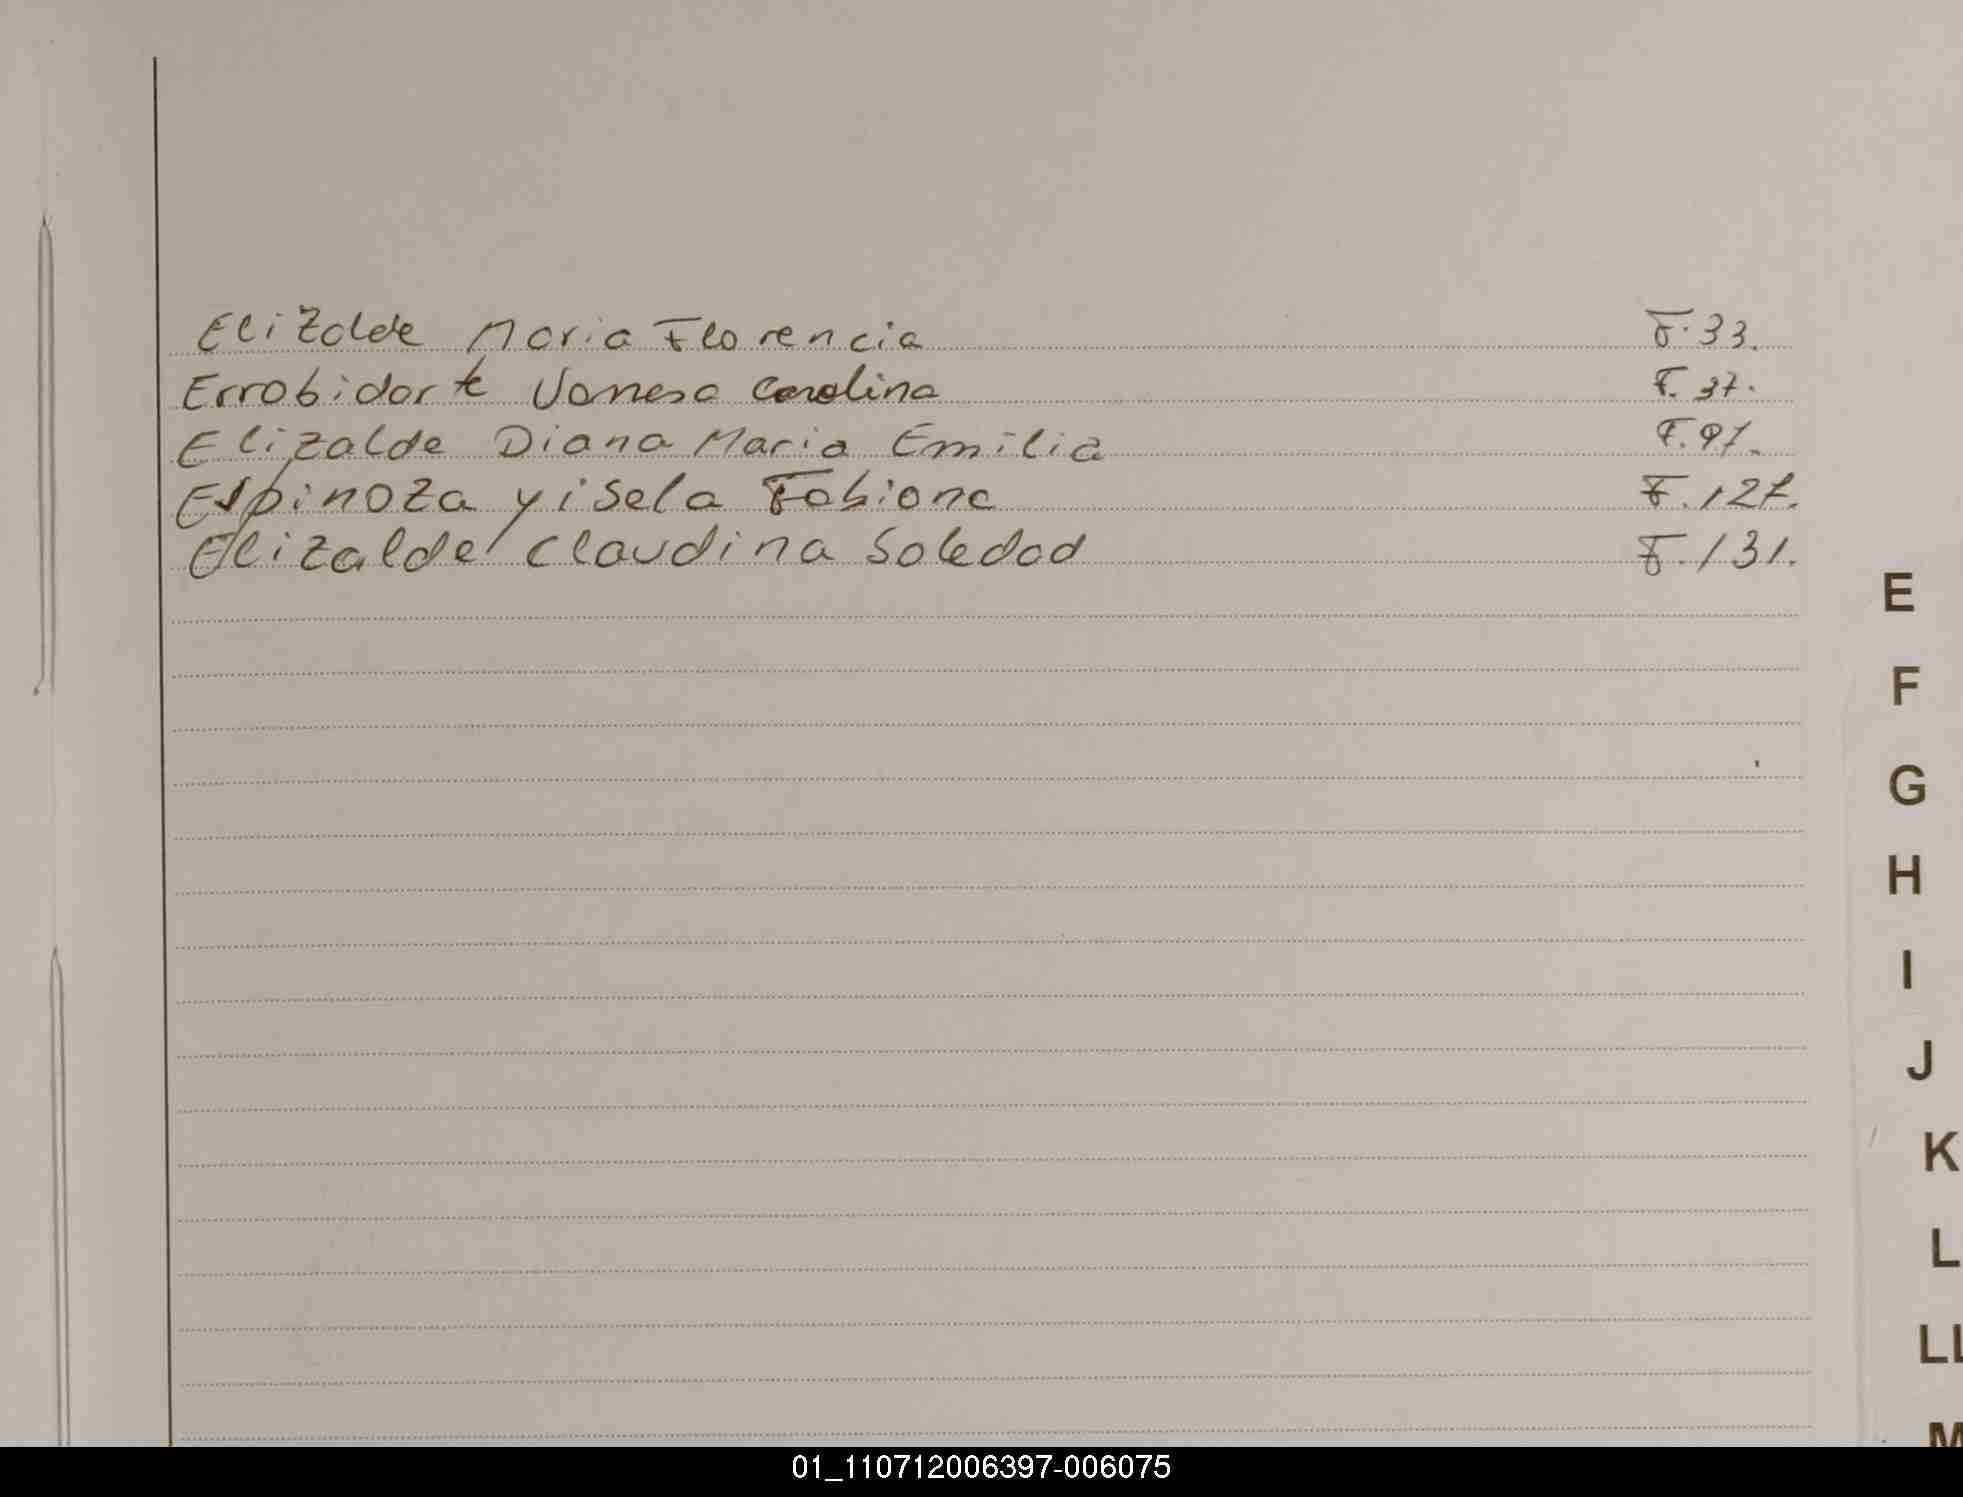 Elizalde Maria Florencia F.33.
Errobidart Vanesa Carolina F.37.
Elizalde Diana Maria Emilia F.97.
Espinoza yisela Fabiana F.127.
Elizalde Claudina Soledad F.131.
E
F
G
H
I
J
K
L
LL
M
01_110712006397-006075